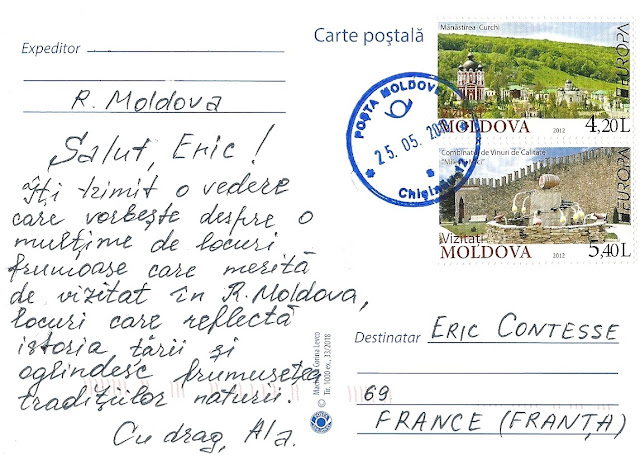 Expeditor
R. Moldova
Salut, Eric!
Îți trimit o vedere
care vorbește despre o
mulțime de locuri
frumoase care merită
de vizitat în R. Moldova,
locuri care reflectă
istoria țării și
oglindesc frumusețea
tradițiilor naturii.
Cu drag, Ala.
Carte poștală
Mănăstirea Curchi
EUROPA
MOLDOVA
2012
4,20L
Combinatul de Vinuri de Calitate
EUROPA
Vizitați
MOLDOVA
2012
5,40L
POȘTA MOLDOVEI
25.05.
Chișinău
Destinatar
ERIC CONTESSE
69
FRANCE (FRANȚA)
Corina Levco
Tir. 1000 ex., 33/2018